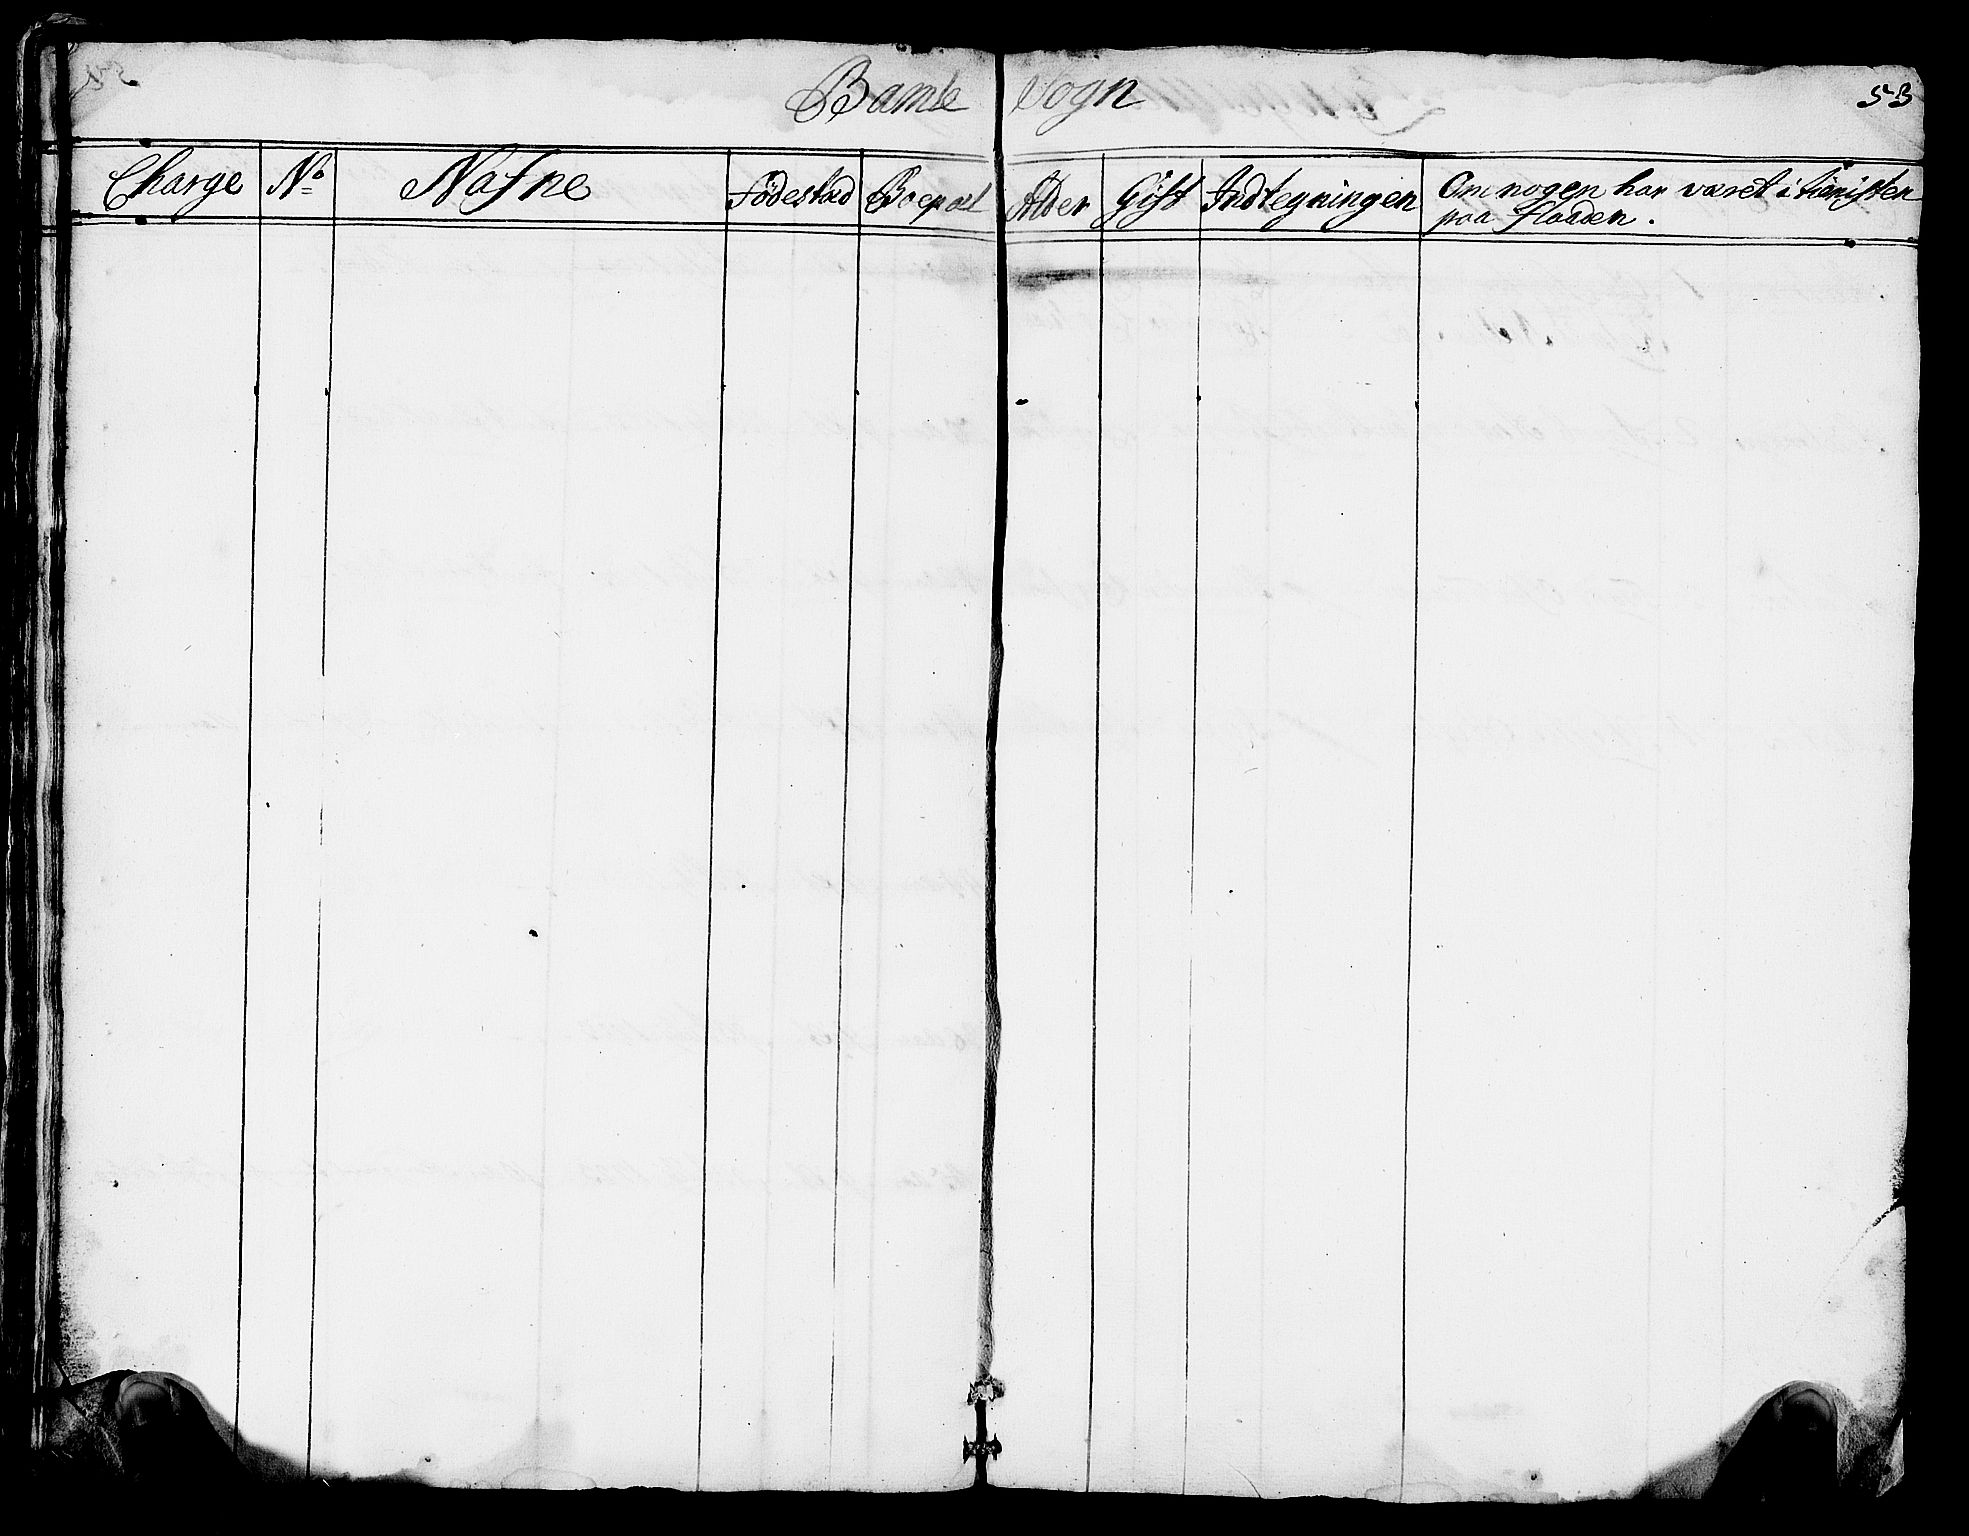 Bamle Sogn
53
Charge No Nafne Födestæd Boepæl Alder Gift Indtegningen Om nogen har været i tienisten
paa Flaaden.